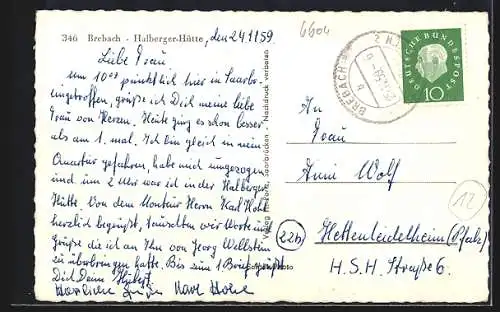 346 Brebach - Halberger-Hütte, den 24.11.59
Liebe Frau
um 10 pünktlich hier in Saarbr.
eingetroffen, grüße ich Dich meine liebe
Frau von Herzen. Heute ging es schon besser
als am 1. mal. Ich bin gleich in mein
Quartier gefahren, habe mich umgezogen
und um 2 Uhr war ich in der Halberger
Hütte. Von dem Monteur Herrn Karl Hohl
herzlich begrüßt, wir Worte und
Grüße die ich an Ihn von Georg Wellstein
zu überbringen hatte. Bis zum 1 Brief grüßt
Dich Dein Hubert
Herzliche Grüße Karl Hohl
Saarbrücken - Nachdruck verboten
6604
BREBACH
DEUTSCHE BUNDESPOST
10
An
Frau
Anni Wolf
Hettenleidelheim (Pfalz)
H.S.H. Straße 6.
22b
12